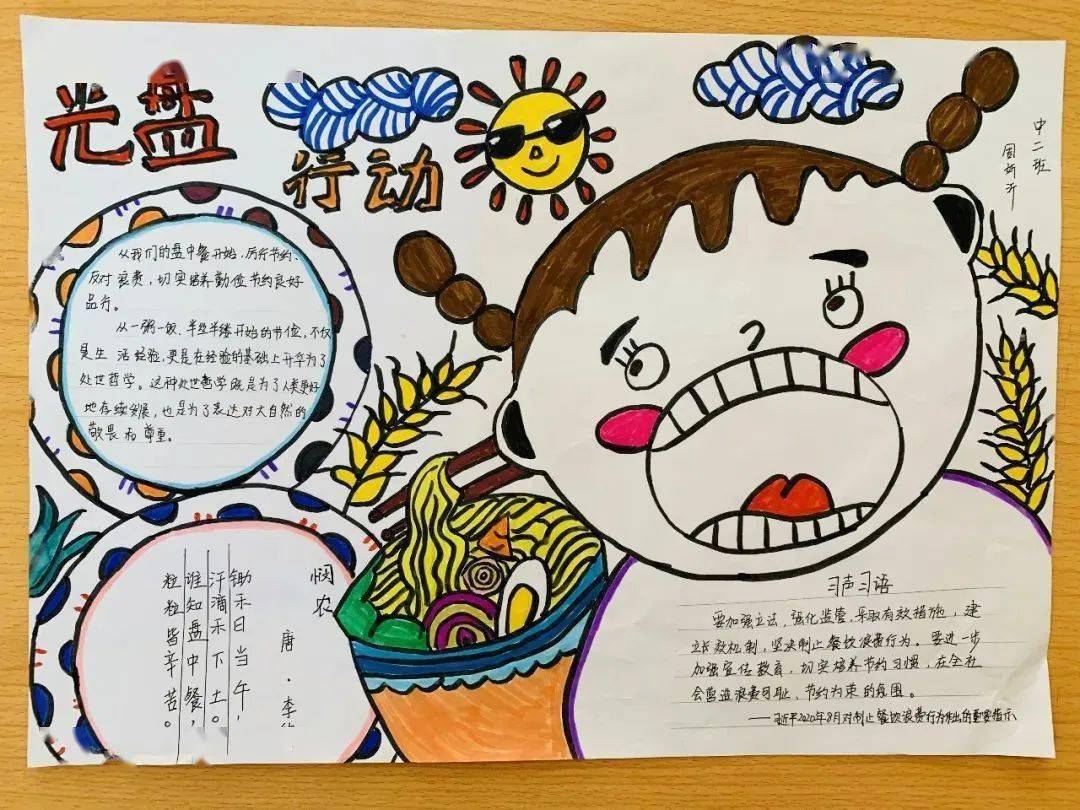 光盘
行动
中二班
周妍亓
从我们的盘中餐开始，厉行节约、
反对浪费，切实培养勤俭节约良好
品行。
从一粥一饭、半丝半缕开始的节俭，不仅
是生活经验，更是在经验的基础上升华为了
处世哲学。这种处世哲学既是为了人类更好
地存续发展，也是为了表达对大自然的
敬畏和尊重。
悯农
唐·李
锄禾日当午，
汗滴禾下土。
谁知盘中餐，
粒粒皆辛苦。
习声习语
要加强立法，强化监管，采取有效措施，建
立长效机制，坚决制止餐饮浪费行为。要进一步
加强宣传教育，切实培养节约习惯，在全社
会营造浪费可耻、节约为荣的氛围。
——习近平2020年8月对制止餐饮浪费行为作出的重要指示